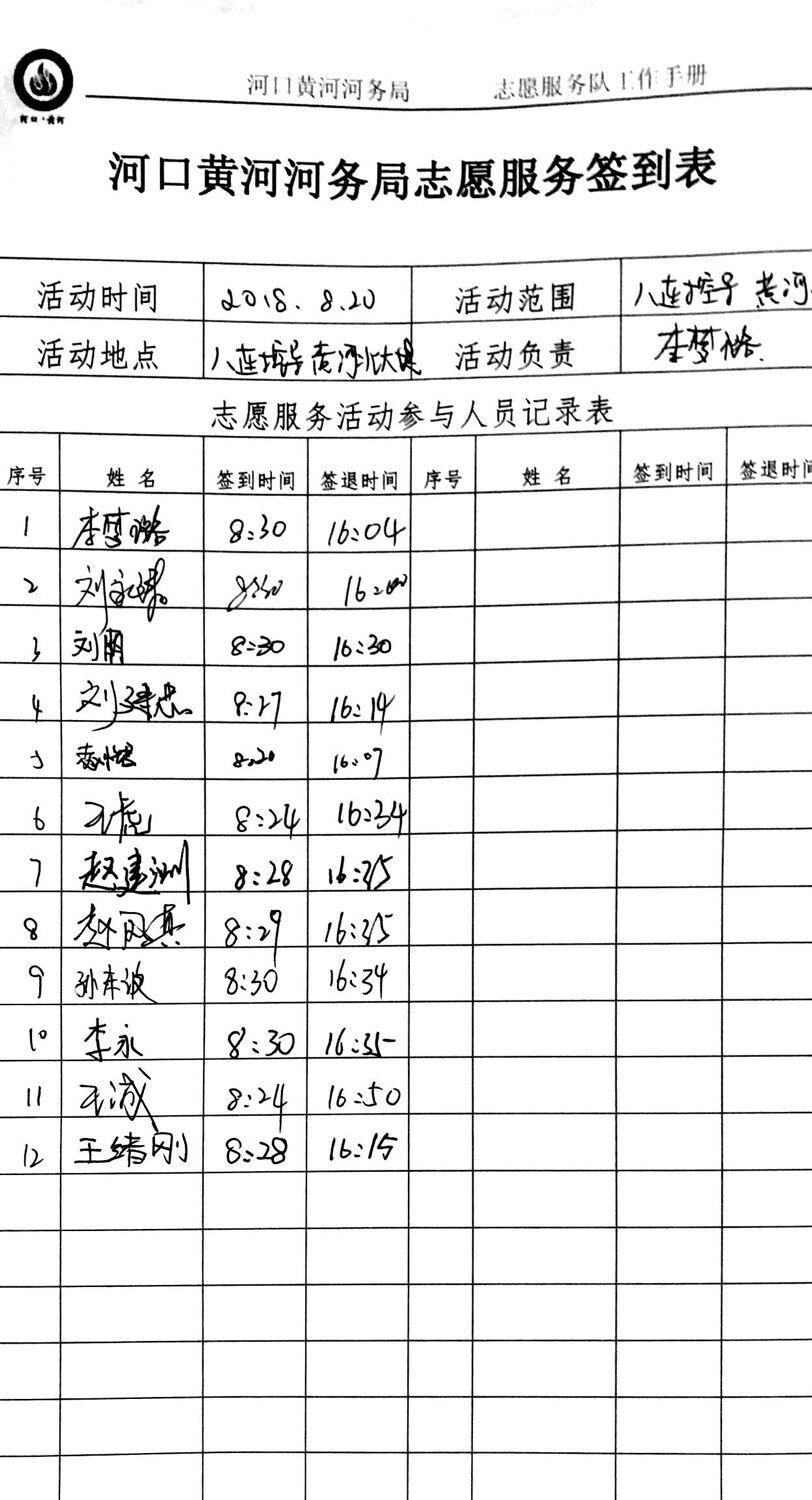 河口·黄河
河口黄河河务局 志愿服务队工作手册
河口黄河河务局志愿服务签到表
活动时间 2018.8.20 活动范围 八连控导 黄河
活动地点 八连控导黄河北大堤 活动负责 李梦璐
志愿服务活动参与人员记录表
序号 姓名 签到时间 签退时间 序号 姓名 签到时间 签退时间
1 李梦璐 8:30 16:04
2 刘 8:30 16:00
3 刘明 8:30 16:30
4 刘建忠 8:27 16:14
5 8:20 16:07
6 王虎 8:24 16:34
7 赵建洲 8:28 16:35
8 赵同真 8:29 16:35
9 孙东波 8:30 16:34
10 李永 8:30 16:35
11 王诚 8:24 16:50
12 王绪刚 8:28 16:15